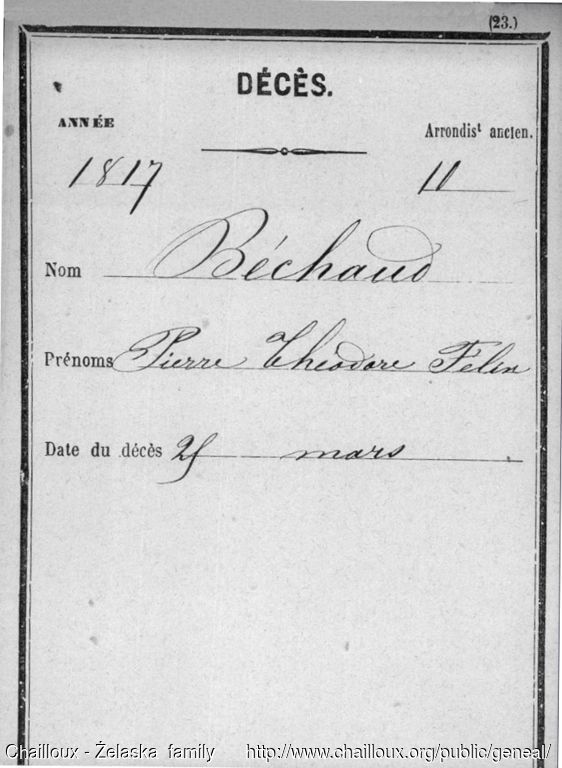 (23.)
DÉCÈS.
ANNÉE
Arrondist ancien.
1817
10
Nom Béchaud
Prénoms Pierre Théodore Félix
Date du décès 25 mars
Chailloux - Żelaska family http://www.chailloux.org/public/geneal/